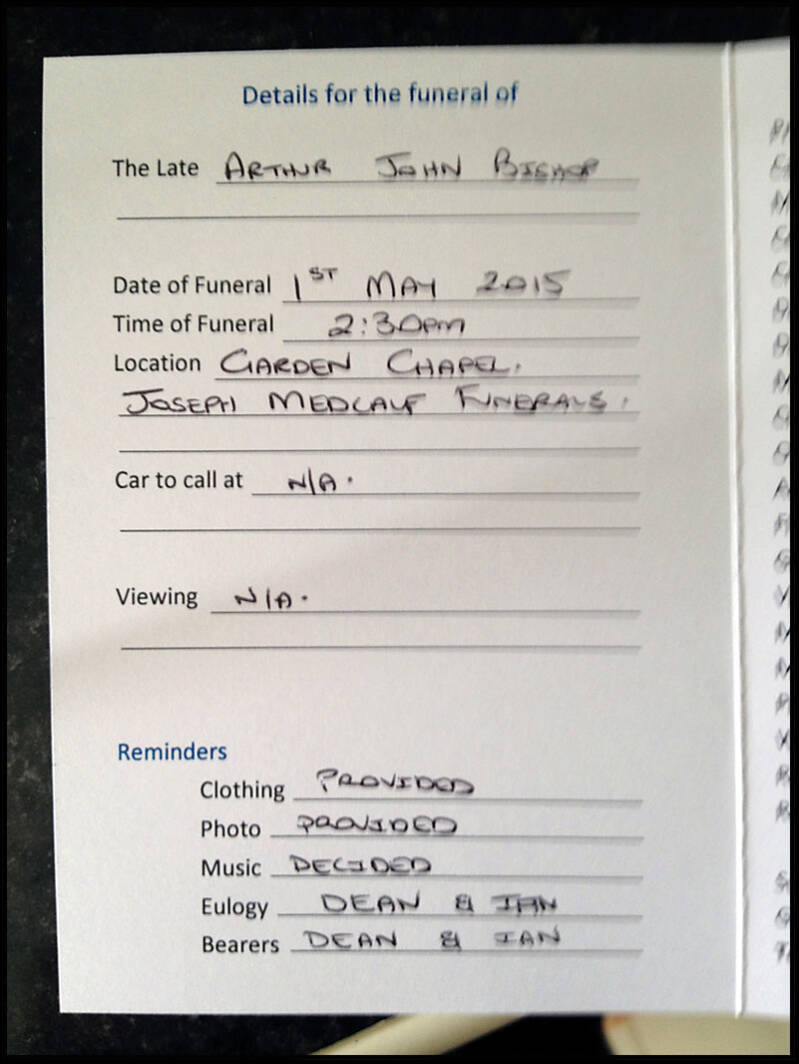 Details for the funeral of
The Late ARTHUR JOHN BISHOP
Date of Funeral 1ST MAY 2015
Time of Funeral 2:30PM
Location GARDEN CHAPEL.
JOSEPH MEDCALF FUNERALS.
Car to call at N/A.
Viewing N/A.
Reminders
Clothing PROVIDED
Photo PROVIDED
Music DECIDED
Eulogy DEAN & IAN
Bearers DEAN & IAN